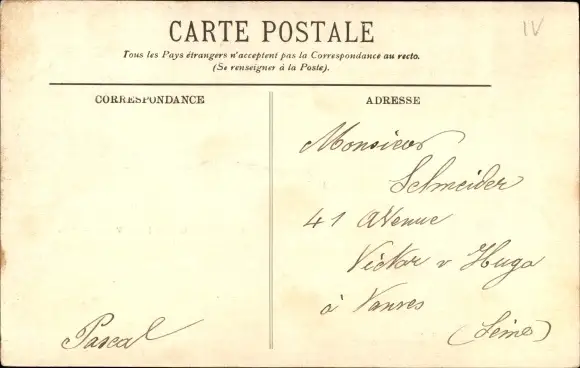 CARTE POSTALE
IV
Tous les Pays étrangers n'acceptent pas la Correspondance au recto.
(Se renseigner à la Poste).
CORRESPONDANCE
Pascal
ADRESSE
Monsieur
Schneider
41 AVenue
Victor v Hugo
à Vanves
(Seine)